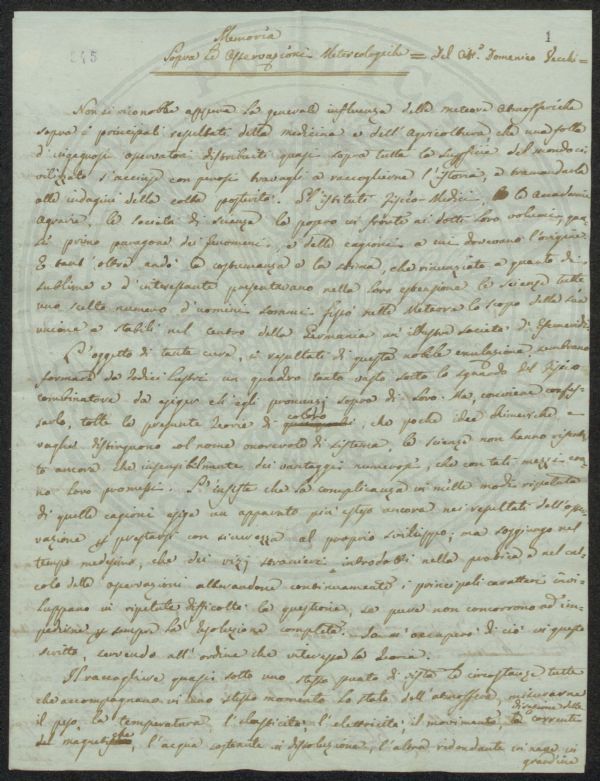 Memoria
245 1
Sopra le Osservazioni Meteorologiche = del Domenico Tecchi =
Non si riconobbe appena la generale influenza delle meteore atmosferiche
sopra i principali resultati della medicina e dell'Agricoltura che una folla
d'ingegnosi operatori distribuiti quasi sopra tutta la superficie del mondo ci
vilizzato s'accinse con penosi travagli a raccoglierne l'istoria, a tramandarla
alle indagini della colta posterità. Gl'istituti Fisico-Medici, le Accademie
Agrarie, le società di scienza la posero in fronte ai dotti loro volumi,
primo paragone dei fenomeni, e delle cagioni a cui dovevano l'origine.
E tant'oltre andò la costumanza e la stima, che rinunziato a quanto di
sublime e d'interessante presentavano nella loro estensione le scienze tutte
uno scelto numero d'uomini sommi fissò nelle Meteore lo scopo della sua
unione e stabilì nel centro della Germania un'illustre società di Efemeridi
L'oggetto di tante cure, i resultati di questa nobile emulazione sembrano
formare da dodici lustri un quadro tanto vasto sotto lo sguardo del Fisico
combinatore da esigere ch'egli pronunzi sopra di loro. Ma, conviene confes
sarlo, tolte le presunte Teorie di coloro, che poche idee chimeriche e
vaghe distinguono col nome onorevole di sistema, le scienze non hanno risenti
to ancora che insensibilmente dei vantaggi numerosi, che con tali mezzi eran
no loro promessi. che la complicanza in mille modi ripetuta
di quelle cagioni esige un apparato più esteso ancora nei resultati dell'osser
vazione prestarsi con sicurezza al proprio sviluppo; ma soggiungo nel
tempo medesimo, che dei vizj introdotti nella pratica e nel cal
colo delle operazioni alterandone continuamente i principali caratteri invi
luppano in ripetute difficoltà la questione, se pure non concorrono ad im
pedirne sempre la soluzione completa. di ciò in questo
scritto, servendo all'ordine che interessa la Teoria.
Il raccogliere quasi sotto uno stesso punto di vista le circostanze tutte
che accompagnano in uno stesso momento lo stato dell'atmosfera, misurarne
il peso, la temperatura, l'elasticità, l'elettricità, il movimento, la direzione della corrente
del magnetismo, l'acqua costante in dissoluzione, l'altra ridondante in neve in
grandine